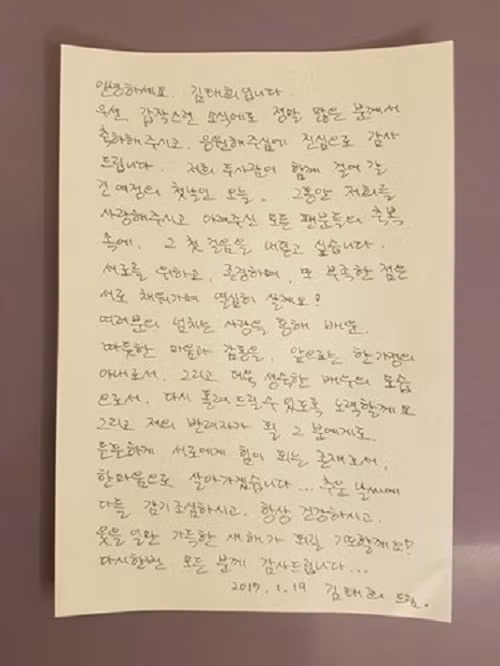 안녕하세요. 김태희입니다.
우선 갑작스런 소식에도 정말 많은 분께서
축하해주시고, 응원해주심에 진심으로 감사
드립니다. 저희 두사람이 함께 걸어 갈
긴 여정의 첫날인 오늘, 그동안 저희를
사랑해주시고 아껴주신 모든 팬분들의 축복
속에, 그 첫 걸음을 내딛고 싶습니다.
서로를 위하고, 존경하며, 또 부족한 점은
서로 채워가며 열심히 살게요!
여러분의 넘치는 사랑을 통해 배운,
따뜻한 마음과 감동을, 앞으로는 한 가정의
아내로서, 그리고 더욱 성숙한 배우의 모습
으로서, 다시 돌려 드릴 수 있도록 노력할게요
그리고 저의 반려자가 될 그 분에게도,
든든하게 서로에게 힘이 되는 존재로서,
한마음으로 살아가겠습니다... 추운 날씨에
다들 감기 조심하시고, 항상 건강하시고,
웃을 일만 가득한 새해가 되길 기도할게요!
다시한번 모든 분께 감사드립니다...
2017. 1. 19 김태희 드림.